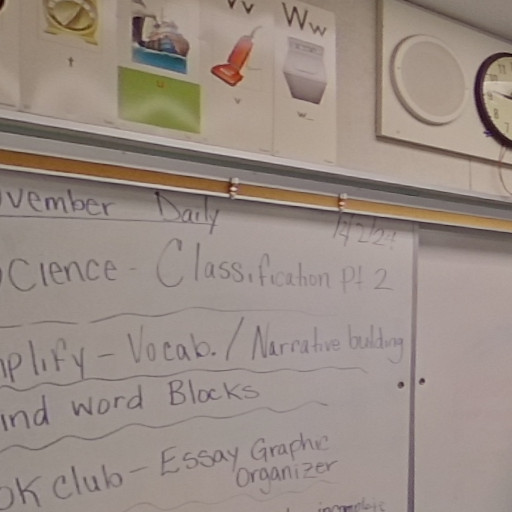 Vv
Ww
t
u
v
w
ovember Daily
12/2/24
cience - Classification Pt 2
plify - Vocab. / Narrative building
ind Word Blocks
ok club - Essay Graphic
Organizer